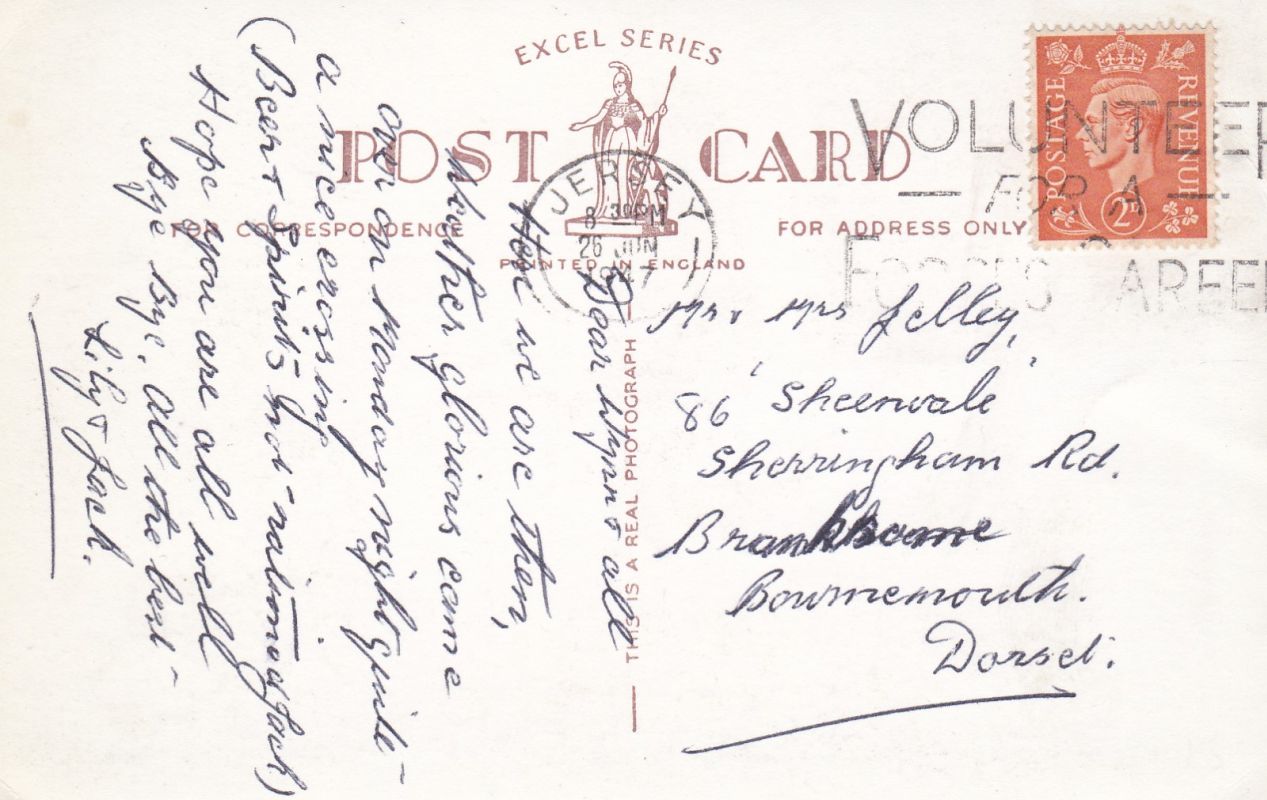 EXCEL SERIES
POST CARD
FOR CORRESPONDENCE
FOR ADDRESS ONLY
PRINTED IN ENGLAND
THIS IS A REAL PHOTOGRAPH
POSTAGE
REVENUE
2D
JERSEY
8 30 PM
26 JUN
VOLUNTEER
FOR A
FORCES AREE
Dear Wyn & all
Here we are then,
weather glorious came
over on Monday night quite
a nice crossing
(Beer & Spirits not rationed Jack)
Hope you are all well
Bye Bye, all the best
Lily & Jack.
Mr & Mrs Jelley,
86 'Sheenvale'
Sherringham Rd.
Branksome
Bournemouth.
Dorset.